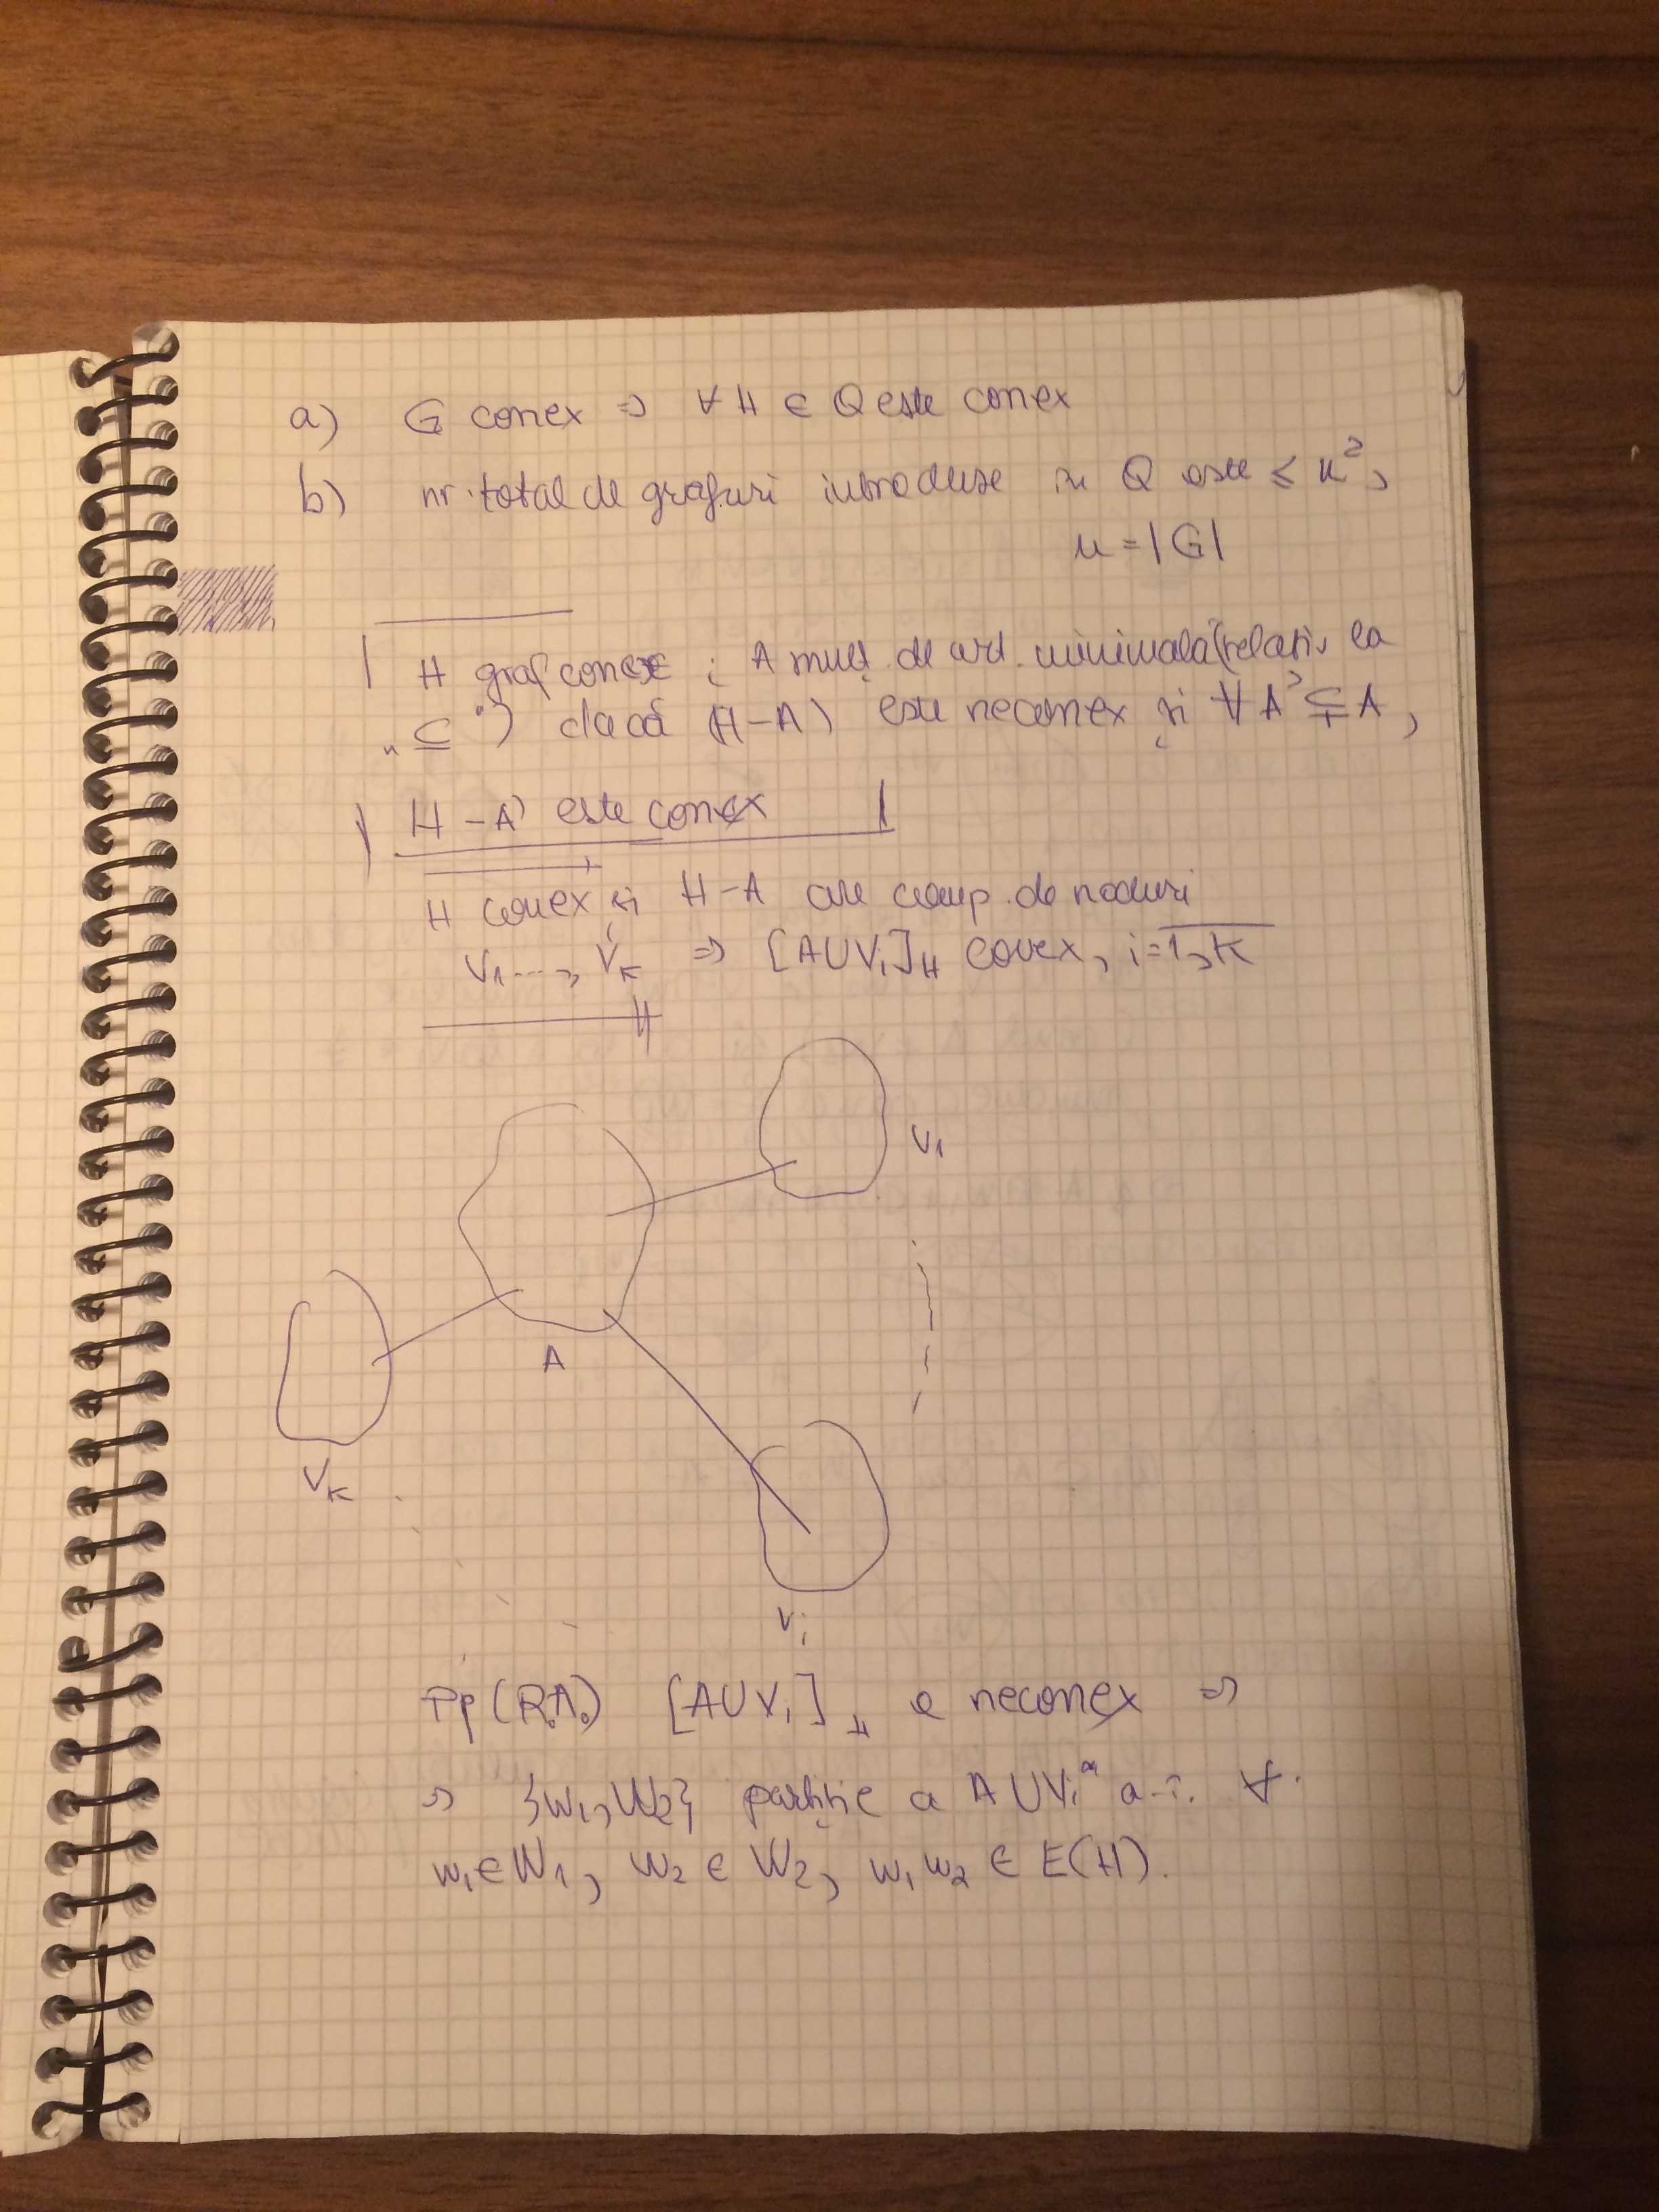 a) G conex ⇒ ∀ H ∈ Q este conex
b) nr. total de grafuri introduse în Q este ≤ n²,
n = |G|
H graf conex ; A mulț. de art. minimală (relativ la
„⊆") dacă (H-A) este neconex și ∀ A' ⊊ A,
H - A' este conex
H conex și H-A are comp. de noduri
V1 ..., Vk ⇒ [A∪Vi]H conex, i=1,k
V1
A
Vk
Vi
Pp (R.A.) [A∪Vi]H e neconex ⇒
⇒ {W1, W2} partiție a A∪Vi a.î. ∀
w1 ∈ W1, w2 ∈ W2, w1 w2 ∈ E(H).